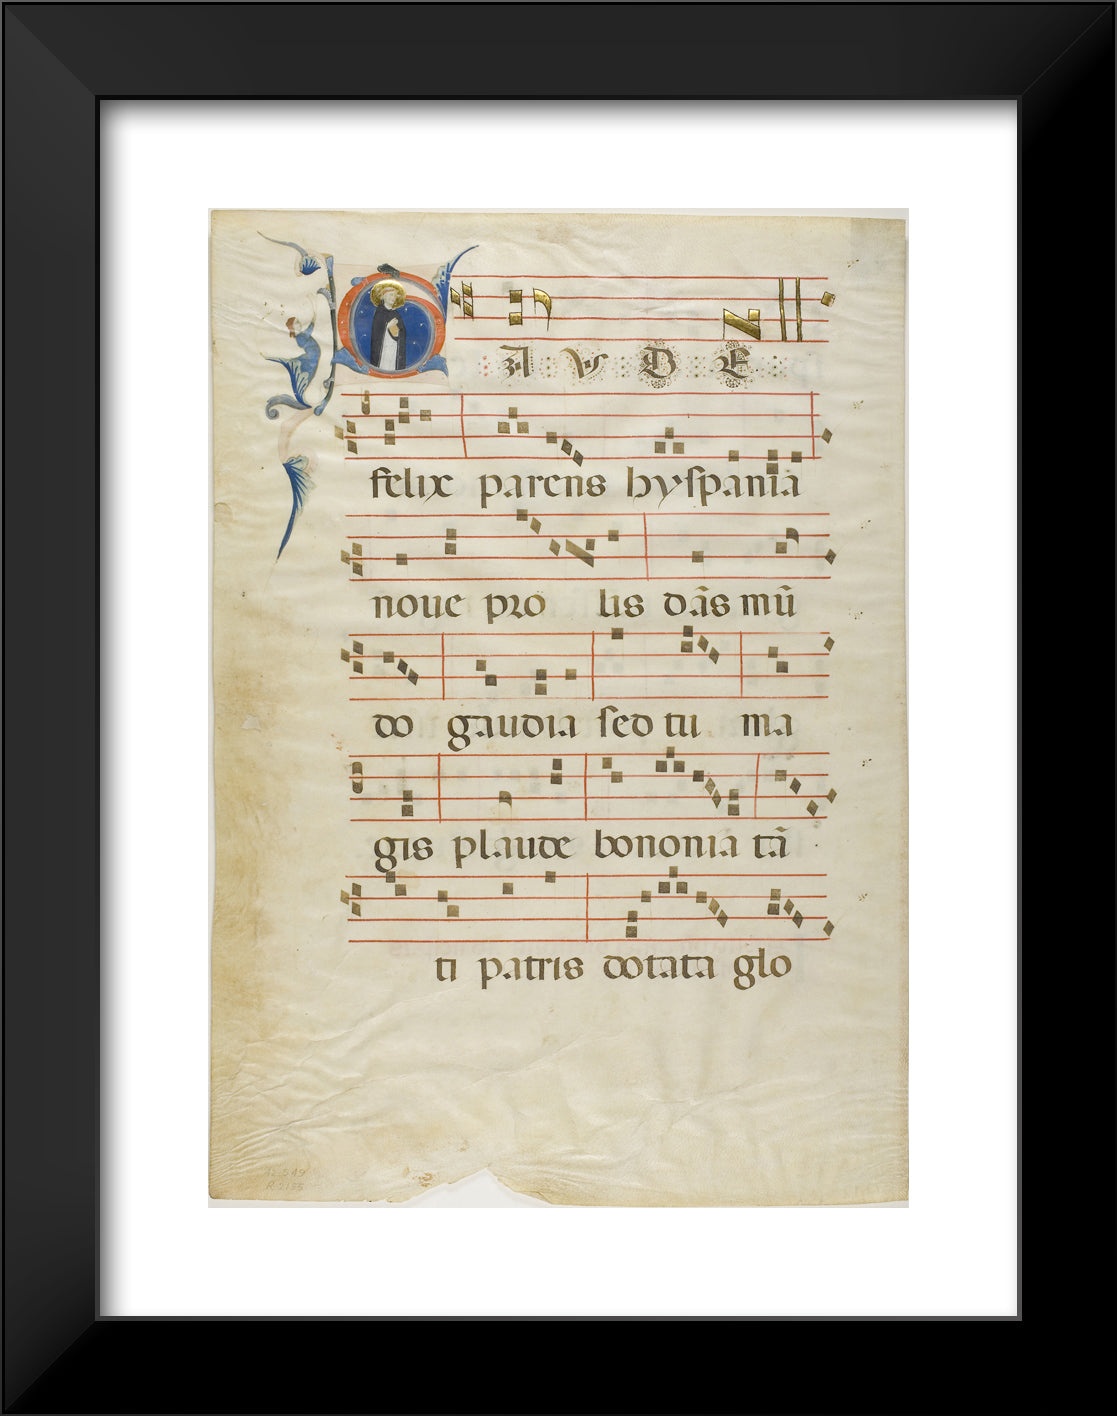 GAUDE
felix parens hyspania
noue pro lis dãs mũ
do gaudia sed tu ma
gis plaude bononia tã
ti patris dotata glo